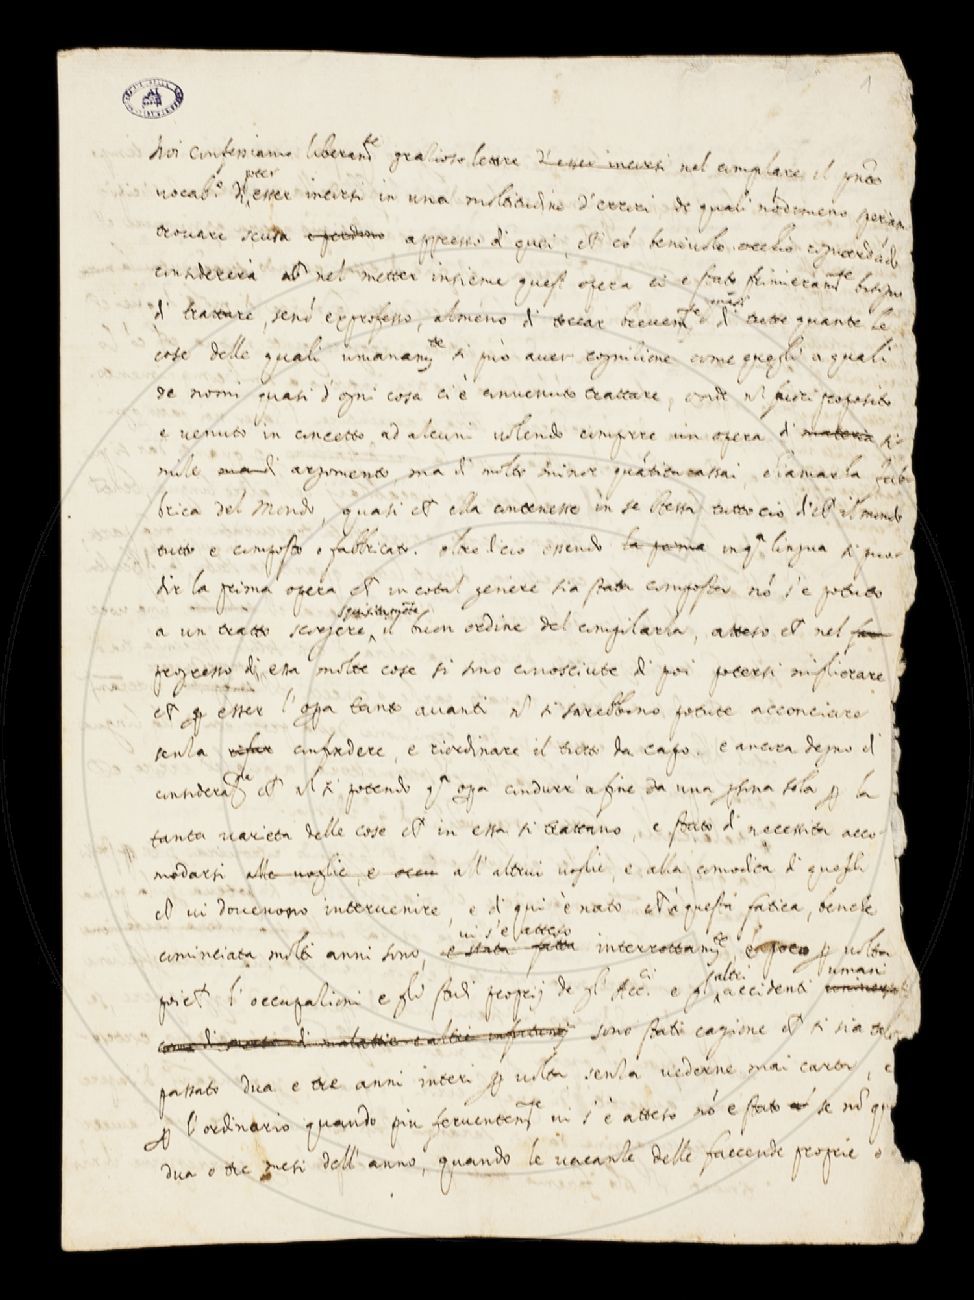 1
Noi confessiamo liberam.te grazioso lettore d'esser incorsi nel compilare il pnte
vocab.o d'poter esser incorsi in una moltitudine d'errori de quali nodimeno speriam
trovare scusa e perdono appresso di quei, che co benevolo occhio
considererà che nel metter insieme quest opera ci e stato primieram.te bisogno
di trattare, seno exprofesso, almeno di toccar brevem.te quasi di tutte quante le
cose delle quali umanam.te si può aver cognitione come quegli a quali
de nomi quasi d'ogni cosa ci è convenuto trattare, onde no fuori proposito
e venuto in concetto ad alcuni volendo comporre un opera di materia si
mile argomento, ma di molto minor assai, chiamarla fab
brica del Mondo, quasi che ella contenesse in se stessa tutto ciò di che il mondo
tutto e composto e fabbricato. oltre dicio essendo la prima in qta lingua si può
dir la prima opera che in cotal genere sia stata composta no s'e potuto
a un tratto scorgere squisitamente il buon ordine del compilarla, atteso che nel
progresso di essa molte cose si sono conosciute di poi potersi migliorare
che p esser l'opa tanto avanti no si sarebbono potute acconciare
senza confondere, e riordinare il tutto da capo. e ancora degno di
considera.ne che no si potendo qta opa condurr' a fine da una psona sola p la
tanta varieta delle cose che in essa si trattano, e stato di necessita acco
modarsi alle voglie, e all' altrui voglie, e alla comodità di quegli
che vi dovevono intervenire, e di qui è nato che questa fatica, benche
cominciata molti anni sono, vi s'e atteso e stata fatta interrottam.te, e poco p volta
poiche l'occupationi e gli studi proprij de gl' Acc.ci e gl' altri accidenti umani
di malattie e altri sono stati cagione che si sia tal
passato dua e tre anni interi p volta senza vederne mai carta, e
p l'ordinario quando piu ferventem.te vi s'è atteso no è stato se no
dua o tre mesi dell'anno, quando le vacanze delle faccende proprie o